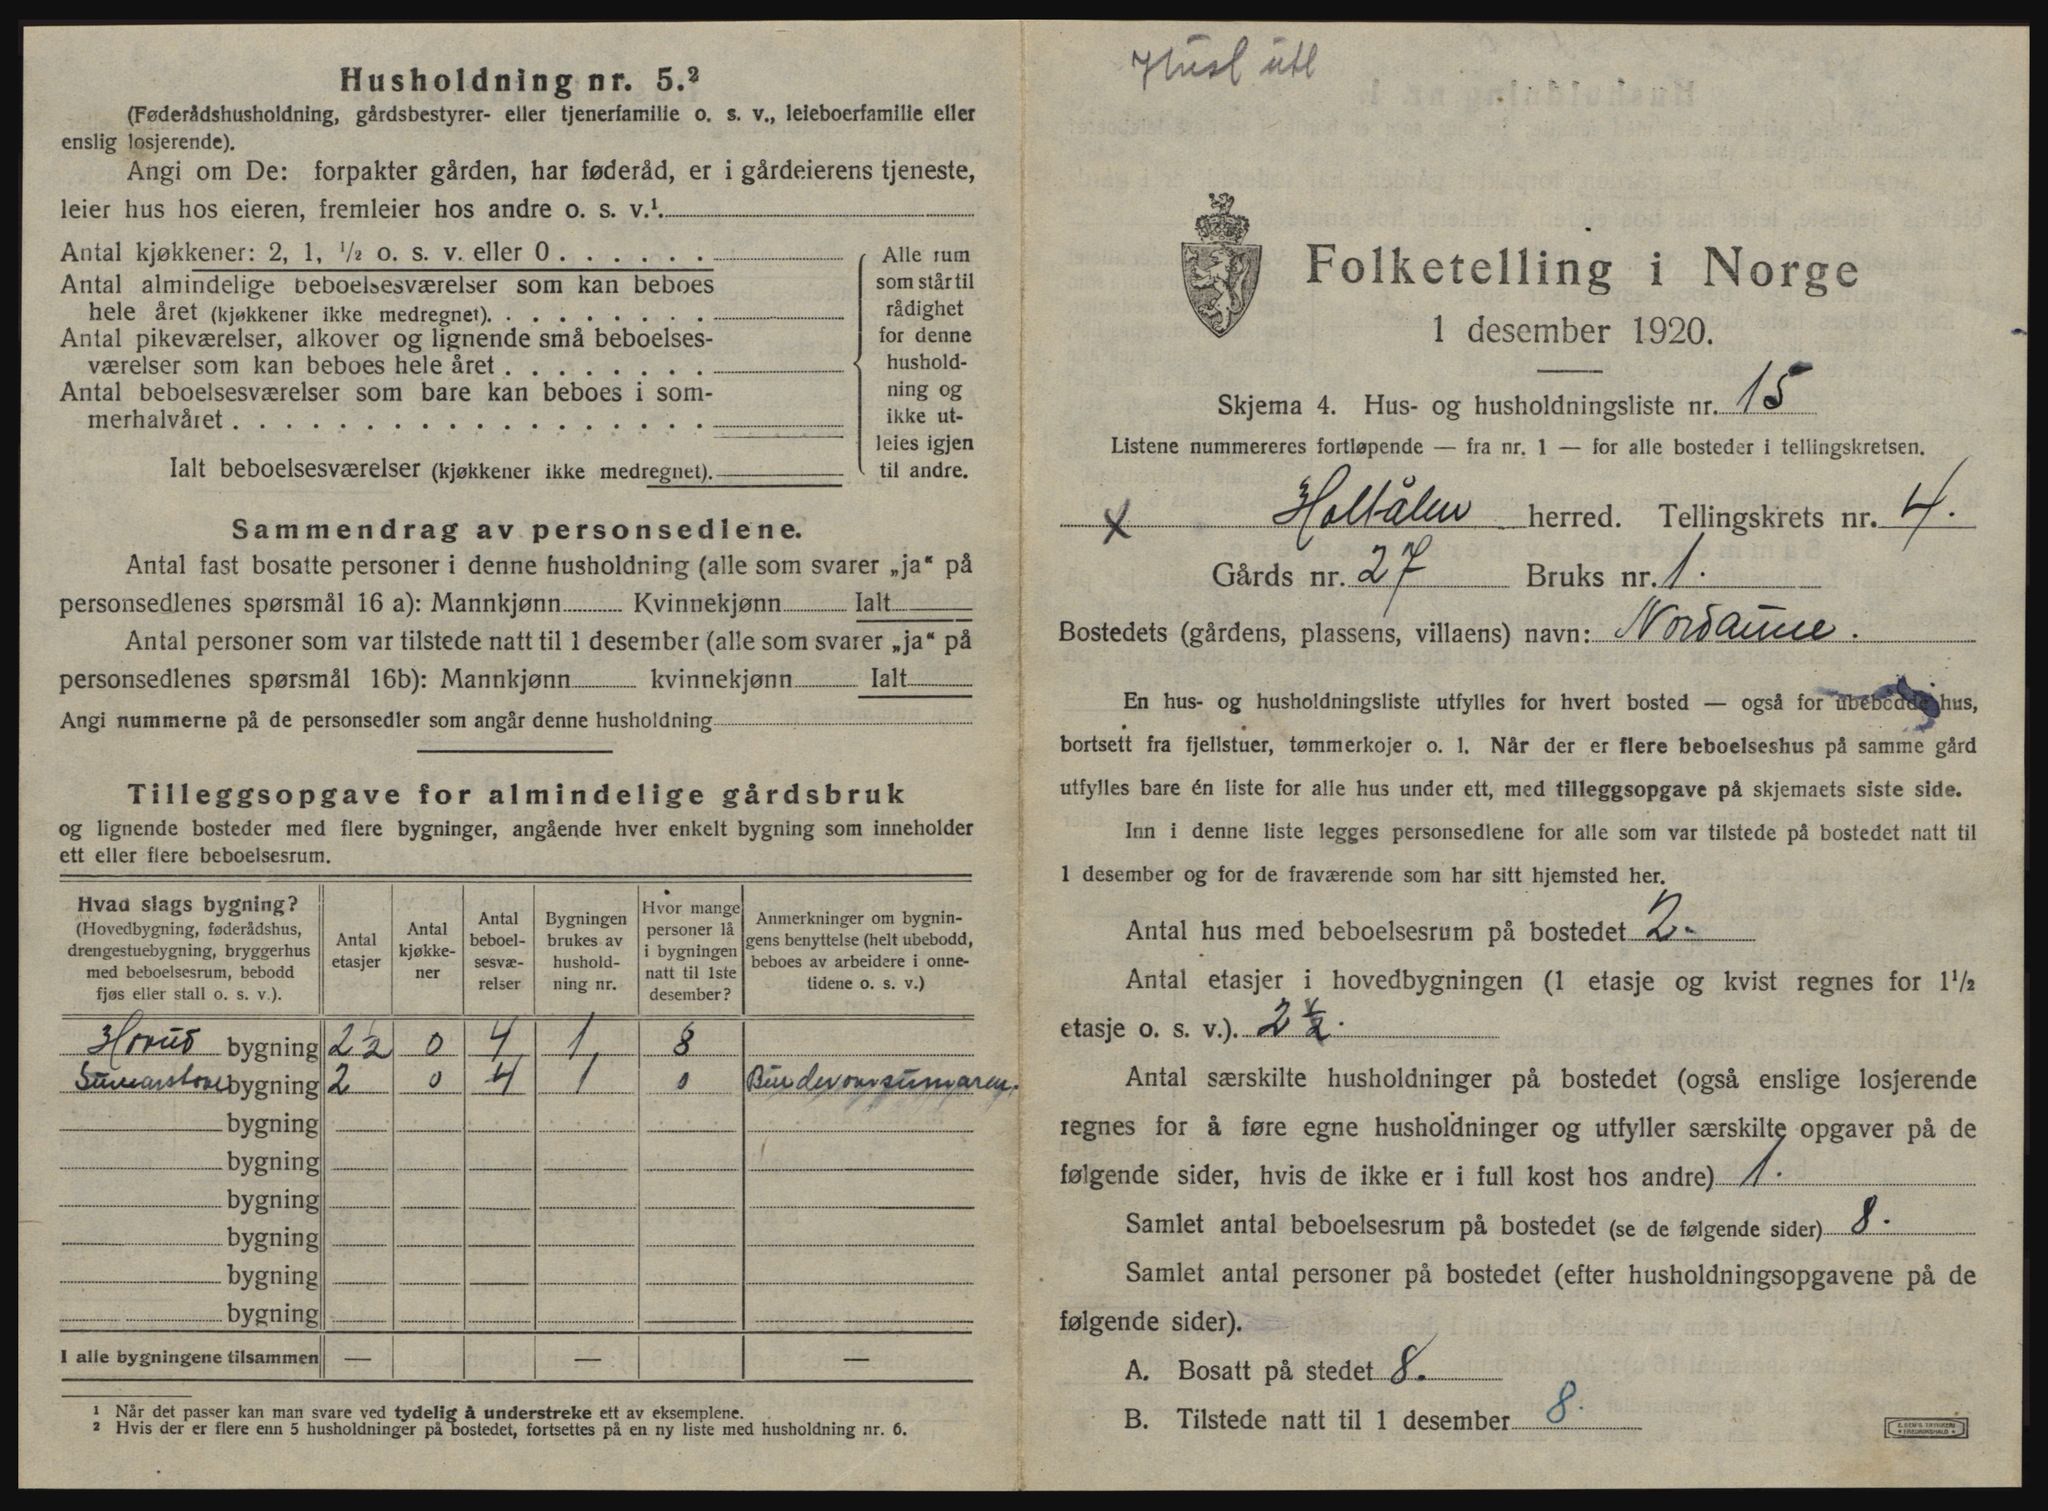 Husholdning nr. 5.²
(Føderådshusholdning, gårdsbestyrer- eller tjenerfamilie o. s. v., leieboerfamilie eller
enslig losjerende).
Angi om De: forpakter gården, har føderåd, er i gårdeierens tjeneste,
leier hus hos eieren, fremleier hos andre o. s. v.¹
Antal kjøkkener: 2, 1, ½ o. s. v. eller 0 . . . . . .
Antal almindelige beboelsesværelser som kan beboes
hele året (kjøkkener ikke medregnet). . . . . . . . .
Antal pikeværelser, alkover og lignende små beboelses-
værelser som kan beboes hele året . . . . . . . .
Antal beboelsesværelser som bare kan beboes i som-
merhalvåret . . . . . . . . . . . . . . . . . .
Ialt beboelsesværelser (kjøkkener ikke medregnet).
Alle rum
som står til
rådighet
for denne
hushold-
ning og
ikke ut-
leies igjen
til andre.
Sammendrag av personsedlene.
Antal fast bosatte personer i denne husholdning (alle som svarer „ja“ på
personsedlenes spørsmål 16 a): Mannkjønn Kvinnekjønn Ialt
Antal personer som var tilstede natt til 1 desember (alle som svarer „ja“ på
personsedlenes spørsmål 16b): Mannkjønn kvinnekjønn Ialt
Angi nummerne på de personsedler som angår denne husholdning
Tilleggsopgave for almindelige gårdsbruk
og lignende bosteder med flere bygninger, angående hver enkelt bygning som inneholder
ett eller flere beboelsesrum.
Hvad slags bygning?
(Hovedbygning, føderådshus,
drengestuebygning, bryggerhus
med beboelsesrum, bebodd
fjøs eller stall o. s. v.).
Antal
etasjer
Antal
kjøkke-
ner
Antal
beboel-
sesvæ-
relser
Bygningen
brukes av
hushold-
ning nr.
Hvor mange
personer lå
i bygningen
natt til 1ste
desember?
Anmerkninger om bygnin-
gens benyttelse (helt ubebodd,
beboes av arbeidere i onne-
tidene o. s. v.)
Hovud bygning 2½ 0 4 1 8
Sumarstove bygning 2 0 4 1 0 Bur der om sumaren.
bygning
bygning
bygning
bygning
bygning
bygning
I alle bygningene tilsammen — — —
¹ Når det passer kan man svare ved tydelig å understreke ett av eksemplene.
² Hvis der er flere enn 5 husholdninger på bostedet, fortsettes på en ny liste med husholdning nr. 6.
Husl utl
Folketelling i Norge
1 desember 1920.
Skjema 4. Hus- og husholdningsliste nr. 15
Listene nummereres fortløpende — fra nr. 1 — for alle bosteder i tellingskretsen.
x Holtålen herred. Tellingskrets nr. 4.
Gårds nr. 27 Bruks nr. 1.
Bostedets (gårdens, plassens, villaens) navn: Nordaune.
En hus- og husholdningsliste utfylles for hvert bosted — også for ubebodde hus,
bortsett fra fjellstuer, tømmerkojer o. l. Når der er flere beboelseshus på samme gård
utfylles bare én liste for alle hus under ett, med tilleggsopgave på skjemaets siste side.
Inn i denne liste legges personsedlene for alle som var tilstede på bostedet natt til
1 desember og for de fraværende som har sitt hjemsted her.
Antal hus med beboelsesrum på bostedet 2.
Antal etasjer i hovedbygningen (1 etasje og kvist regnes for 1½
etasje o. s. v.). 2½.
Antal særskilte husholdninger på bostedet (også enslige losjerende
regnes for å føre egne husholdninger og utfyller særskilte opgaver på de
følgende sider, hvis de ikke er i full kost hos andre) 1.
Samlet antal beboelsesrum på bostedet (se de følgende sider) 8.
Samlet antal personer på bostedet (efter husholdningsopgavene på de
følgende sider).
A. Bosatt på stedet 8.
B. Tilstede natt til 1 desember 8.